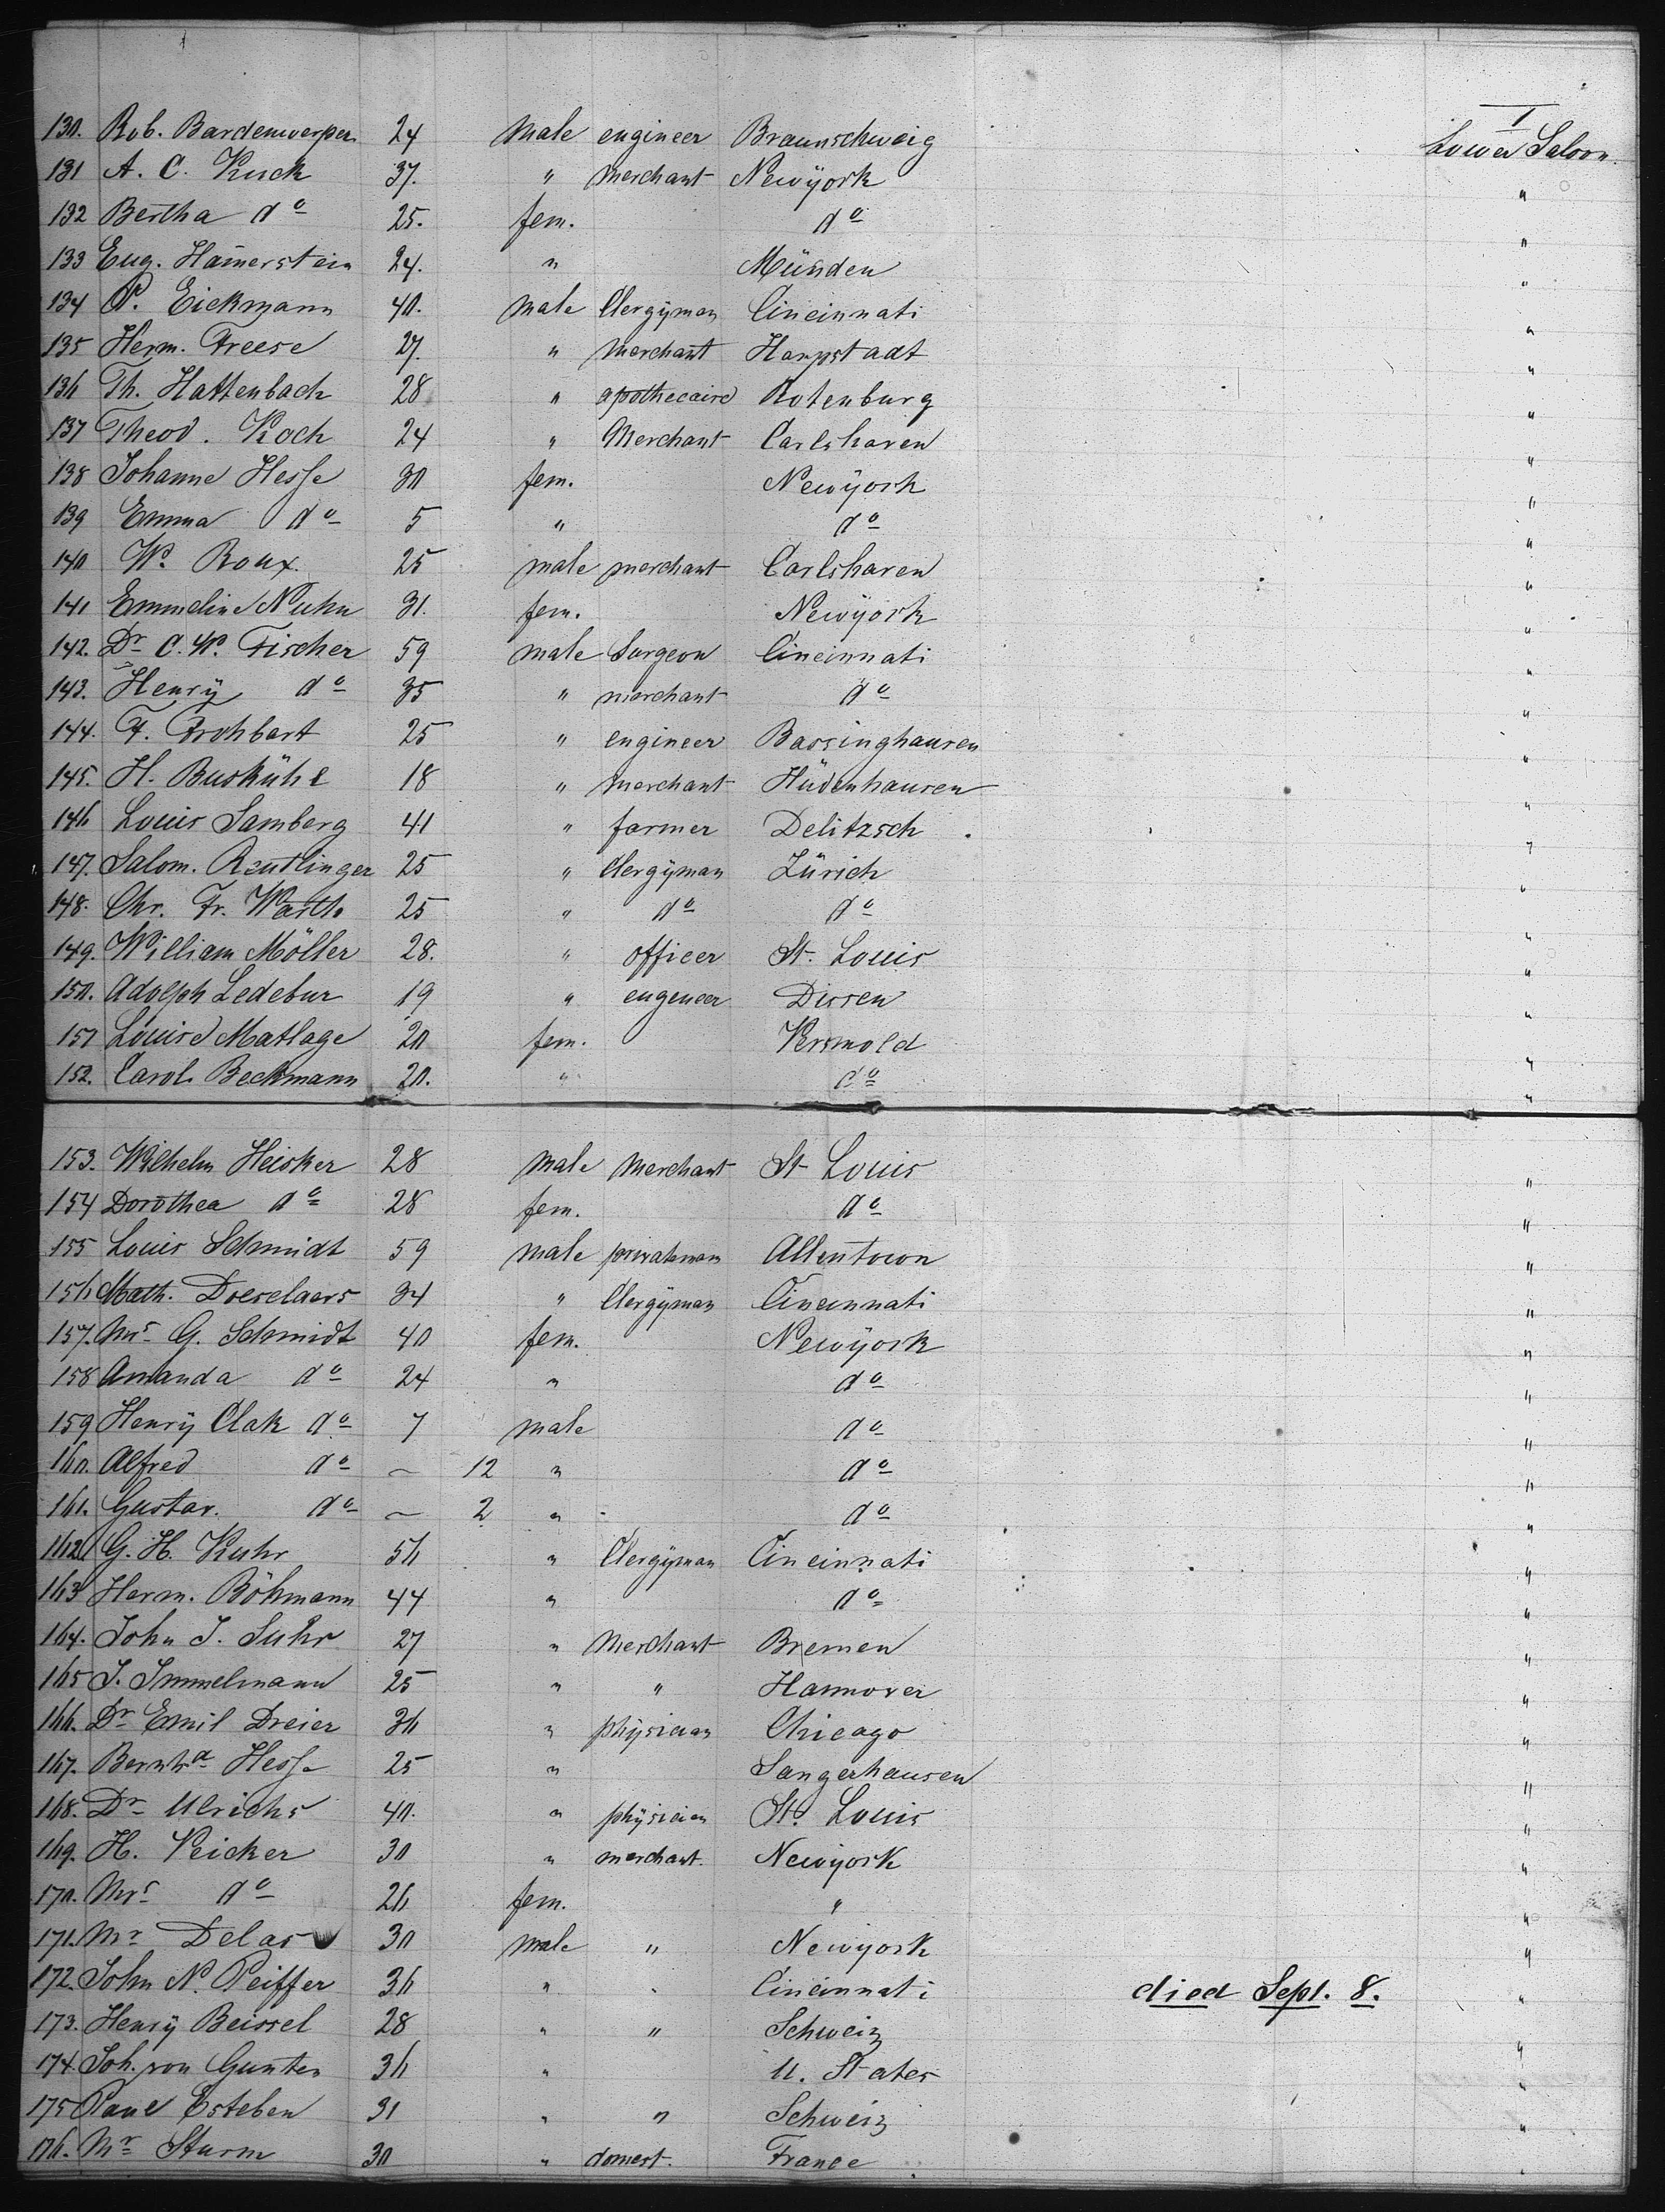 1
130. Rob. Bardenwerper 24 male engineer Braunschweig Lower Saloon.
131 A. C. Kuck 37. " merchant Newÿork "
132 Bertha do 25. fem. do "
133 Eug. Hamerstein 24. " Münden "
134 P. Eickmann 40. male Clergÿman Cincinnati "
135 Herm. Freese 27. " merchant Harpstadt "
136 Th. Hattenbach 28 " apothecaire Rotenburg "
137 Theod. Koch 24 " Merchant Carlshaven "
138 Johanne Hesse 30 fem. Newÿork "
139 Emma do 5 " do "
140 W. Roux. 25 male merchant Carlshaven "
141 Emmeline Nuhn 31. fem. Newÿork "
142. Dr C. W. Fischer 59 male Surgeon Cincinnati "
143. Henrÿ do 35 " merchant do "
144. F. Frohbart 25 " engineer Bassinghausen "
145. H. Buskühl 18 " merchant Hüdenhausen "
146 Louis Samberg 41 " farmer Delitzsch . "
147. Salom. Reutlinger 25 " Clergÿman Zürich "
148. Chr. Fr. Warth 25 " do do "
149. William Möller 28. " officer St. Louis "
150. Adolph Ledebur 19 " engeneer Dissen "
151 Louise Matlage 20 fem. Versmold "
152. Carol. Beckmann 20. " do "
153. Wilhelm Heisker 28 male merchant St Louis "
154 Dorothea do 28 fem. do "
155 Louis Schmidt 59 male privateman Allentown "
156 Math. Dreselaers 34 " Clergÿman Cincinnati "
157. Mrs G. Schmidt 40 fem. Newÿork "
158 Amanda do 24 " do "
159 Henrÿ Clak do 7 male do "
160. Alfred do – 12 " do "
161. Gustav. do – 2 " do "
162 G. H. Kuhr 56 " Clergÿman Cincinnati "
163 Herm. Böhmann 44 " do "
164. John J. Suhr 27 " Merchant Bremen "
165 J. Immelmann 25 " " Hannover "
166. Dr Emil Dreier 36 " phÿsician Chicago "
167. Bernhd Hesse 25 " Sangerhausen "
168. Dr Ulrichs 40. " phÿsician St. Louis "
169. H. Peicker 30 " merchant. Newÿork "
170. Mrs do 26 fem. " "
171. Mr Delas 30 male " Newyork "
172. John N. Peiffer 36 " . Cincinnati died Sept. 8. "
173. Henrÿ Beissel 28 " " Schweiz "
174. Joh. von Gunten 36 " U. States "
175 Paul Esteben 31 " " Schweiz "
176. Mr Sturm 30 " domest. France "